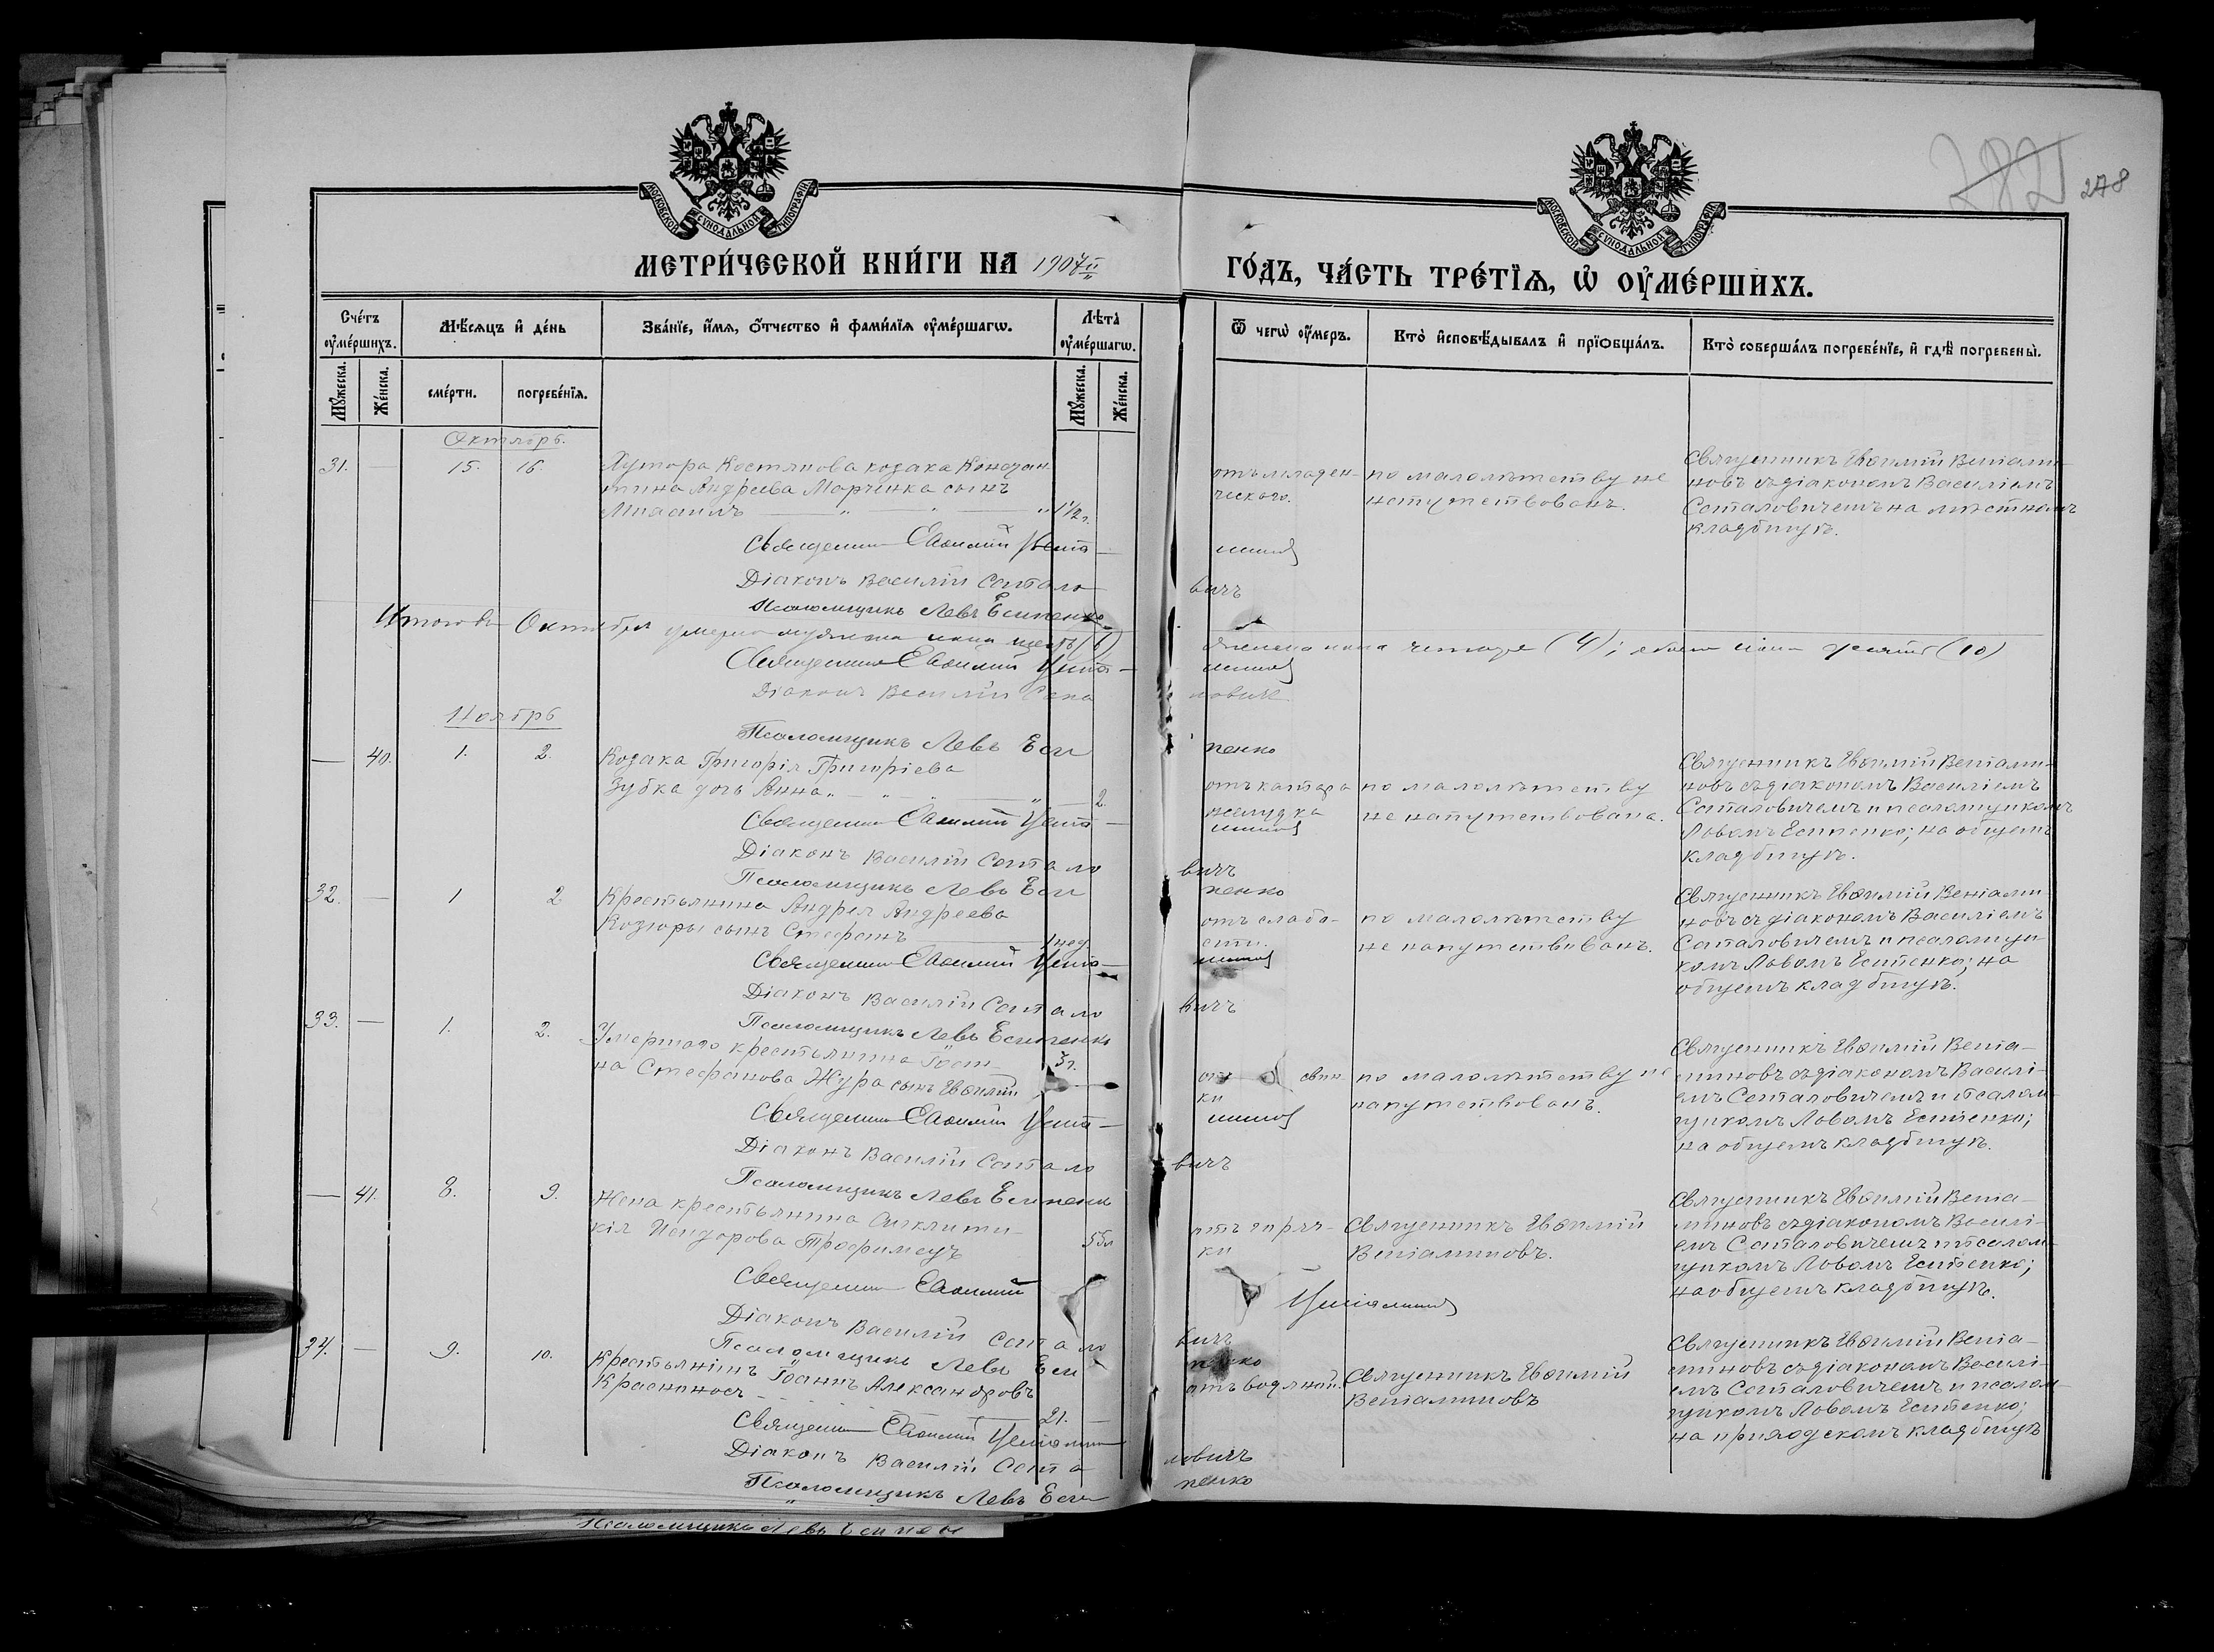 МОСКОВСКОЙ СУНОДАЛЬНОЙ ТИПОГРАФІИ
МОСКОВСКОЙ СУНОДАЛЬНОЙ ТИПОГРАФІИ
278
МЕТРИ́ЧЕСКОЙ КНИ́ГИ НА 1907 й
ГО́ДЪ, ЧА́СТЬ ТРЕ́ТЇѦ, Ѡ҆ ОУ҆МЕ́РШИХЪ.
Сче́тъ оу҆ме́ршихъ.
Мѣ́сѧцъ и҆ де́нь
Зва́нїе, и҆́мѧ, ѻ҆́тчество и҆ фами́лїѧ оу҆ме́ршагѡ.
Лѣта̀ оу҆ме́ршагѡ.
Ѿ чегѡ̀ оу҆́меръ.
Кто̀ и҆сповѣ́дывалъ и҆ прїѻбща́лъ.
Кто̀ соверша́лъ погребе́нїе, и҆ гдѣ̀ погребены̀.
Мꙋ́жеска.
Же́нска.
сме́рти.
погребе́нїѧ.
Мꙋ́жеска.
Же́нска.
Октябрь.
31. — 15. 16.
Хутора Костянова козака Констан-
тина Андреева Марченка сынъ
Михаилъ — " — " — " 1½ г.
отъ младен-
ческаго.
по малолѣтству не
напутствованъ.
Священникъ Евѳимій Веніами-
новъ съ діакономъ Василіемъ
Саталовичемъ на мѣстномъ
кладбищѣ.
Священникъ Евѳимій Веніа-
миновъ
Діаконъ Василій Сатало-
вичъ
Псаломщикъ Левъ Есипенко
Итого въ Октябрѣ умерло мужеска пола шесть (6)
женска пола четыре (4); обоего пола десять (10)
Священникъ Евѳимій Веніа-
миновъ
Діаконъ Василій Сата
ловичъ
Ноябрь
Псаломщикъ Левъ Еси
пенко
— 40. 1. 2.
Козака Григорія Григоріева
Зубка дочь Анна " — " — " — 2.
отъ катара
желудка
по малолѣтству
не напутствована.
Священникъ Евѳимій Веніами-
новъ съ діакономъ Василіемъ
Саталовичемъ и псаломщикомъ
Львомъ Есипенко; на общемъ
кладбищѣ.
Священникъ Евѳимій Веніа-
миновъ
Діаконъ Василій Сатало
вичъ
Псаломщикъ Левъ Еси
пенко
32. — 1 2
Крестьянина Андрея Андреева
Козюры сынъ Стефанъ — 1 нед
отъ слабо-
сти.
по малолѣтству
не напутствованъ.
Священникъ Евѳимій Веніами-
новъ съ діакономъ Василіемъ
Саталовичемъ и псаломщи-
комъ Львомъ Есипенко; на
общемъ кладбищѣ.
Священникъ Евѳимій Веніа-
миновъ
Діаконъ Василій Сатало
вичъ
Псаломщикъ Левъ Есипенко
33. — 1. 2.
Умершаго крестьянина Іоан-
на Стефанова Жура сынъ Евѳимій 3 г.
свин-
ки
по малолѣтству не
напутствованъ.
Священникъ Евѳимій Веніа-
миновъ съ діакономъ Василі-
емъ Саталовичемъ и псалом-
щикомъ Львомъ Есипенко;
на общемъ кладбищѣ.
Священникъ Евѳимій Веніа-
миновъ
Діаконъ Василій Сатало
вичъ
Псаломщикъ Левъ Есипенко
— 41. 8. 9.
Жена крестьянина
Исидорова Трофимецъ 55 л
отъ горяч-
ки
Священникъ Евѳимій
Веніаминовъ.
Священникъ Евѳимій Веніа-
миновъ съ діакономъ Василі-
емъ Саталовичемъ и псалом-
щикомъ Львомъ Есипенко;
на общемъ кладбищѣ.
Священникъ Евѳимій
Веніаминовъ
Діаконъ Василій Сатало
вичъ
Псаломщикъ Левъ Еси
пенко
34. — 9. 10.
Крестьянинъ Іоаннъ Александровъ
Красноносъ — 21. —
отъ водяной.
Священникъ Евѳимій
Веніаминовъ
Священникъ Евѳимій Веніа-
миновъ съ діакономъ Василі-
емъ Саталовичемъ и псалом-
щикомъ Львомъ Есипенко;
на приходскомъ кладбищѣ
Священникъ Евѳимій Веніамин
Діаконъ Василій Сата
ловичъ
Псаломщикъ Левъ Еси
пенко
Псаломщикъ Левъ Есипен